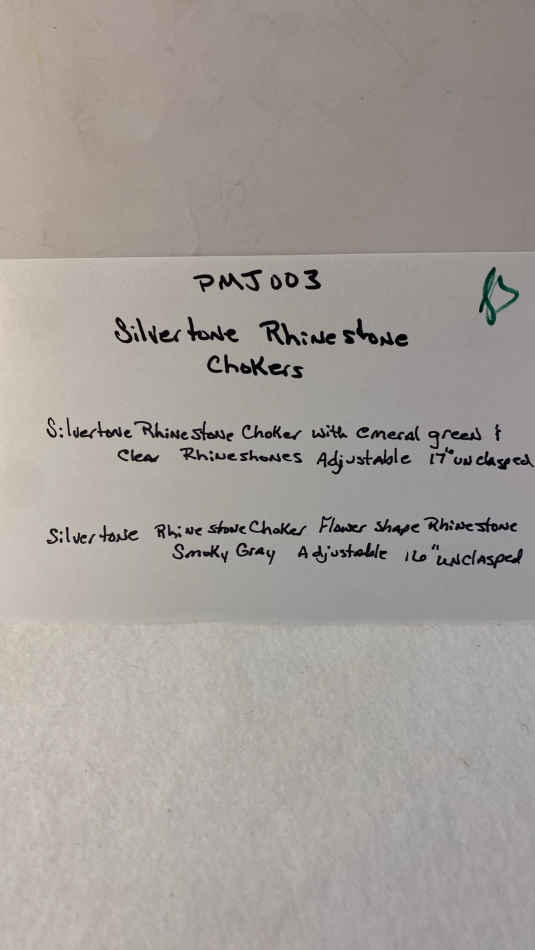 PMJ003
Silvertone Rhinestone
Chokers
Silvertone Rhinestone Choker with emeral green &
Clear Rhineshones Adjustable 17" unclasped
Silvertone Rhinestone Choker Flower shape Rhinestone
Smoky Gray Adjustable 16" unclasped